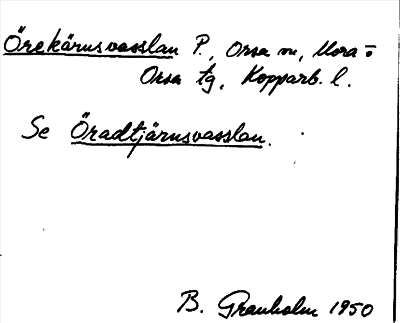 Örekärnsvasslan P., Orsa sn, Mora o
Orsa tg, Kopparb. l.
Se Öradtjärnsvasslan.
B. Granholm 1950